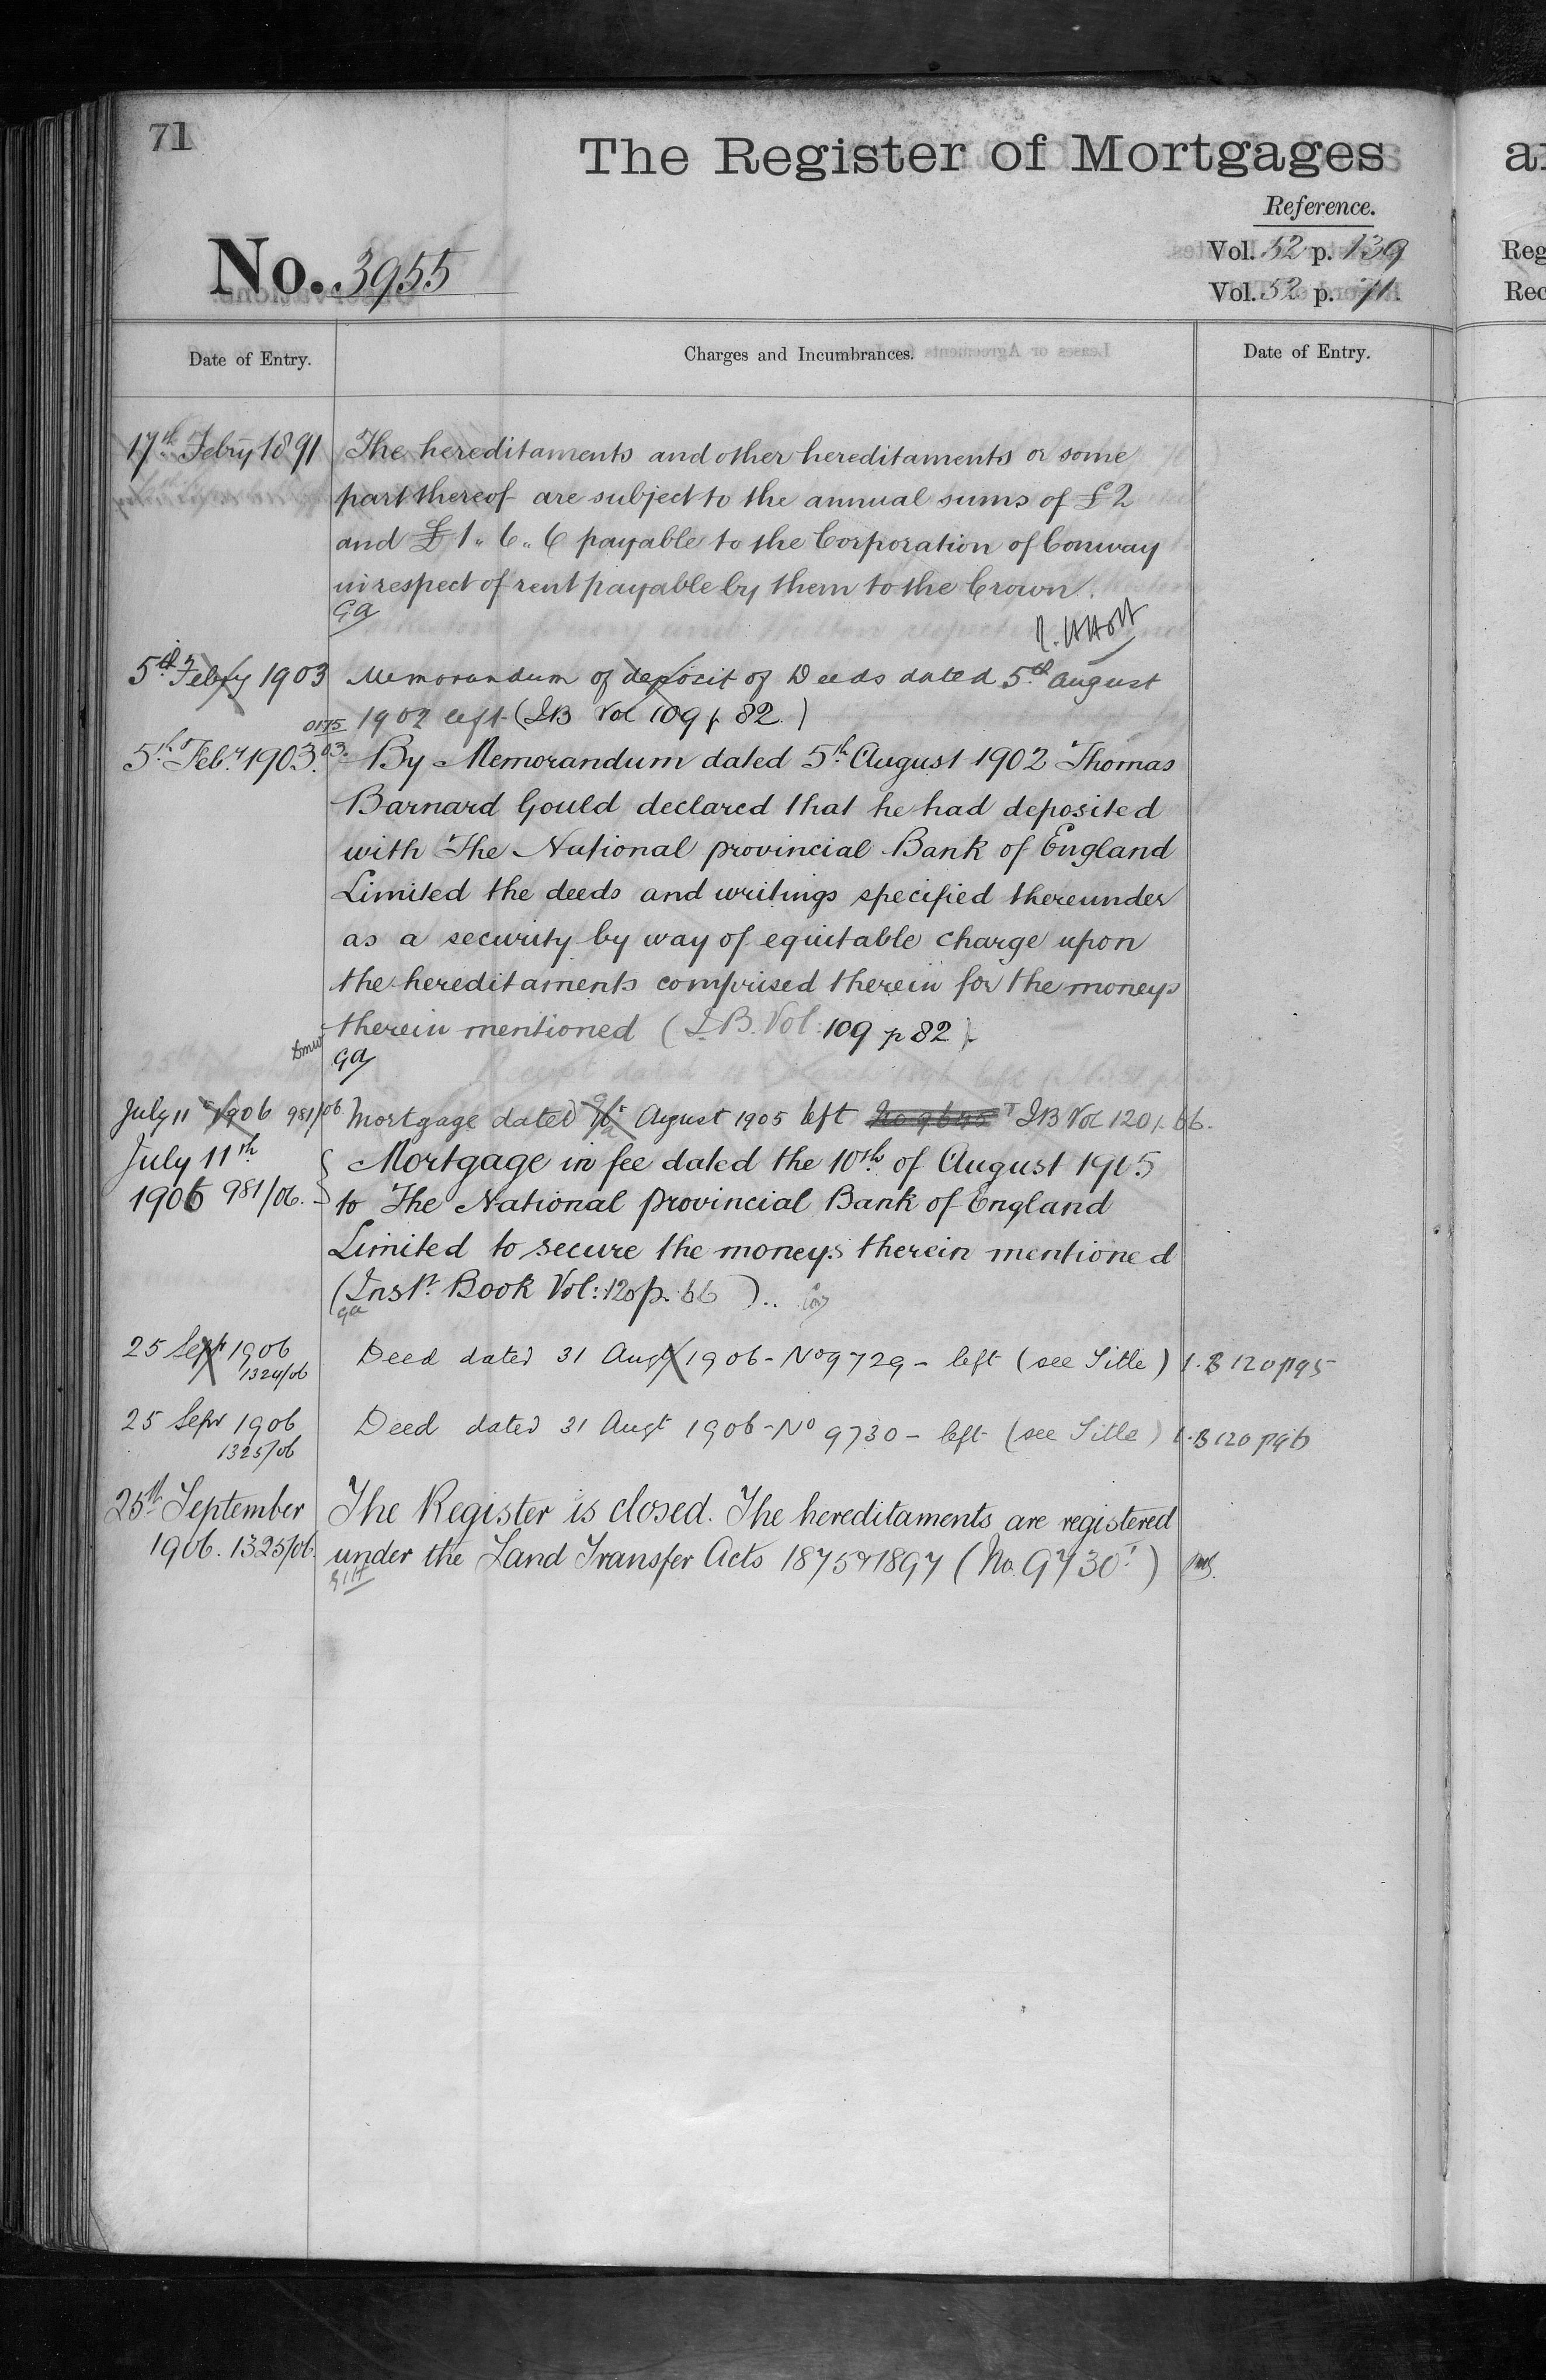 71
The Register of Mortgages
Reference.
No. 3955
Vol. 52 p. 139
Vol. 52 p. 71.
Date of Entry.
Charges and Incumbrances.
Date of Entry.
17th Febry 1891 The hereditaments and other hereditaments or some
part thereof are subject to the annual sums of £2
and £1.. 6.. 6 payable to the Corporation of Conway
in respect of rent payable by them to the Crown.
ga
5th Febry 1903 Memorandum of deposit of Deeds dated 5th August
1902 left (IB Vol 109 p 82.)
0175
03.
5th Febr 1903. By Memorandum dated 5th August 1902 Thomas
Barnard Gould declared that he had deposited
with The National provincial Bank of England
Limited the deeds and writings specified thereunder
as a security by way of equitable charge upon
the hereditaments comprised therein for the moneys
therein mentioned (I.B. Vol: 109 p 82).
ga
July 11 1906 981/06. Mortgage dated August 1905 left IB Vol 120 p. 66.
July 11th Mortgage in fee dated the 10th of August 1905
1906 981/06. to The National Provincial Bank of England
Limited to secure the moneys therein mentioned
(Inst. Book Vol: 120 p. 66 )..
ga
25 Sept 1906 Deed dated 31 Augt 1906 - No 9729 - left (see Title) I.B 120 p 95
1324/06
25 Sepr 1906 Deed dated 31 Augt 1906 - No 9730 - left (see Title) I.B 120 p 96
1325/06
25th September The Register is closed. The hereditaments are registered
1906. 1325/06. under the Land Transfer Acts 1875 & 1897 (No. 9730.)